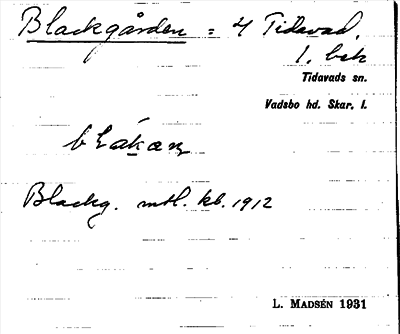 Blackgården = 4 Tidavad.
1. bck
Tidavads sn.
Vadsbo hd. Skar. l.
Blackg. mtl. kb. 1912
L. MADSÉN 1931